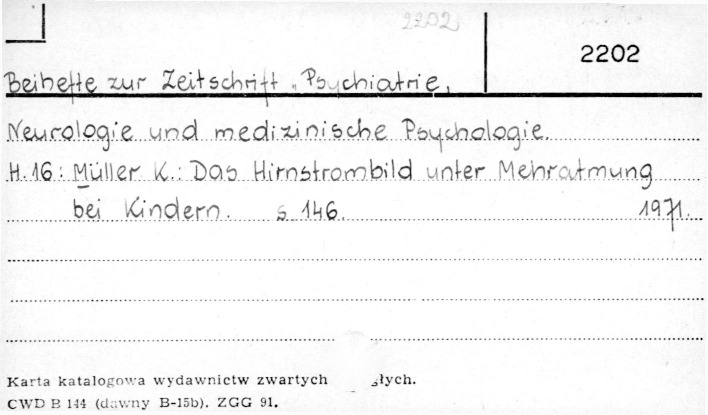 2202
2202
Beihefte zur Zeitschrift „Psychiatrie,
Neurologie und medizinische Psychologie.
H.16: Müller K.: Das Hirnstrombild unter Mehratmung
bei Kindern. s 146. 1971.
Karta katalogowa wydawnictw zwartych głych.
CWD B 144 (dawny B-15b). ZGG 91.